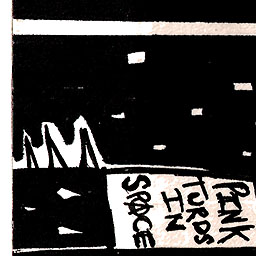 PINK
TURDS
IN
SPACE